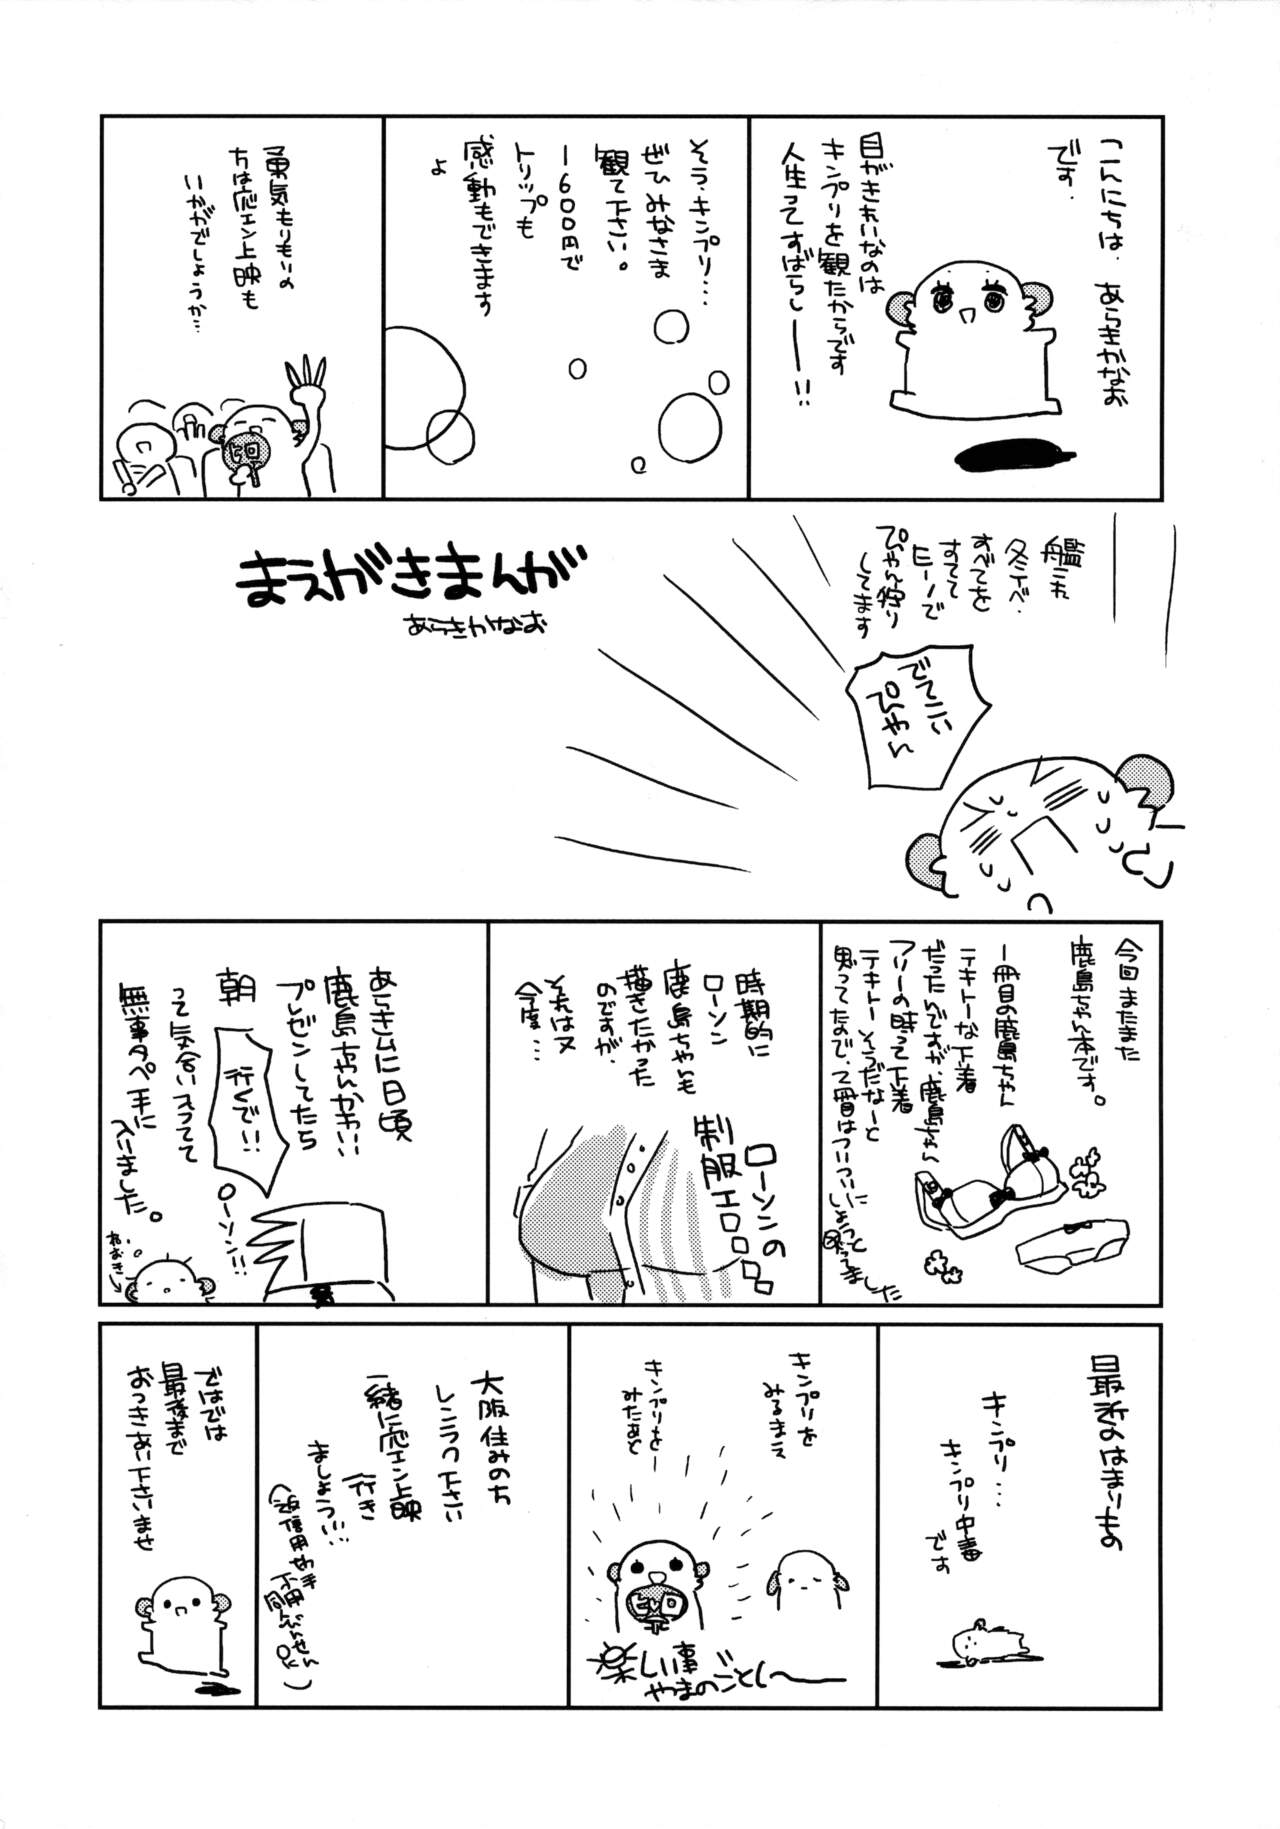 こんにちは、あらきかなお
です。
目がきれいなのは
キンプリを観たからです
人生ってすばらしー!!
そう、キンプリ…
ぜひみなさま
観て下さい。
1600円で
トリップも
感動もできます
よ
勇気もりもりの
方は応エン上映も
いかがでしょうか…
ヒロ
艦これ
冬イベ、
すべてを
すてて
ヒーノで
ぴゃん狩り
してます
でてこい
ぴゃん
まえがきまんが
あらきかなお
今回またまた
鹿島ちゃん本です。
一冊目の鹿島ちゃん
テキトーな下着
だったんですが、鹿島ちゃん
フリーの時って下着
テキトーそうだなーと
思ってたので、2冊目はついついに
しょっと
ってました
時期的に
ローソン
鹿島ちゃんも
描きたかった
のですが、
それは又
今度…
ローソンの
制服エロロロロ
あらきムに日頃
鹿島ちゃんかわいい
プレゼンしてたら
朝
行くで!!
ローソン!!
って気合い入ってて
無事タペ手に
入りました。
ねおき
最近のはまりもの
キンプリ…
キンプリ中毒
です
キンプリを
みるまえ
キンプリを
みたあと
ヒロ
楽しい事
やまのごとし〜
大阪住みの方
レンラク下さい
一緒に応エン上映
行き
ましょう…
(返信用切手
不用びんせん
同 OK)
ではでは
最後まで
おつきあい下さいませ